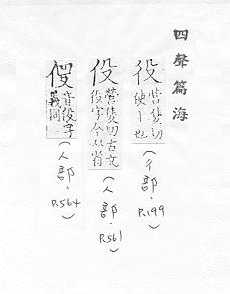 四聲篇海
役
營隻切
使卜也
(彳部.
P.199)
伇
營隻切古文
役字今从省
(人部.
P.561)
音役字
義同
(人部.
P.564)